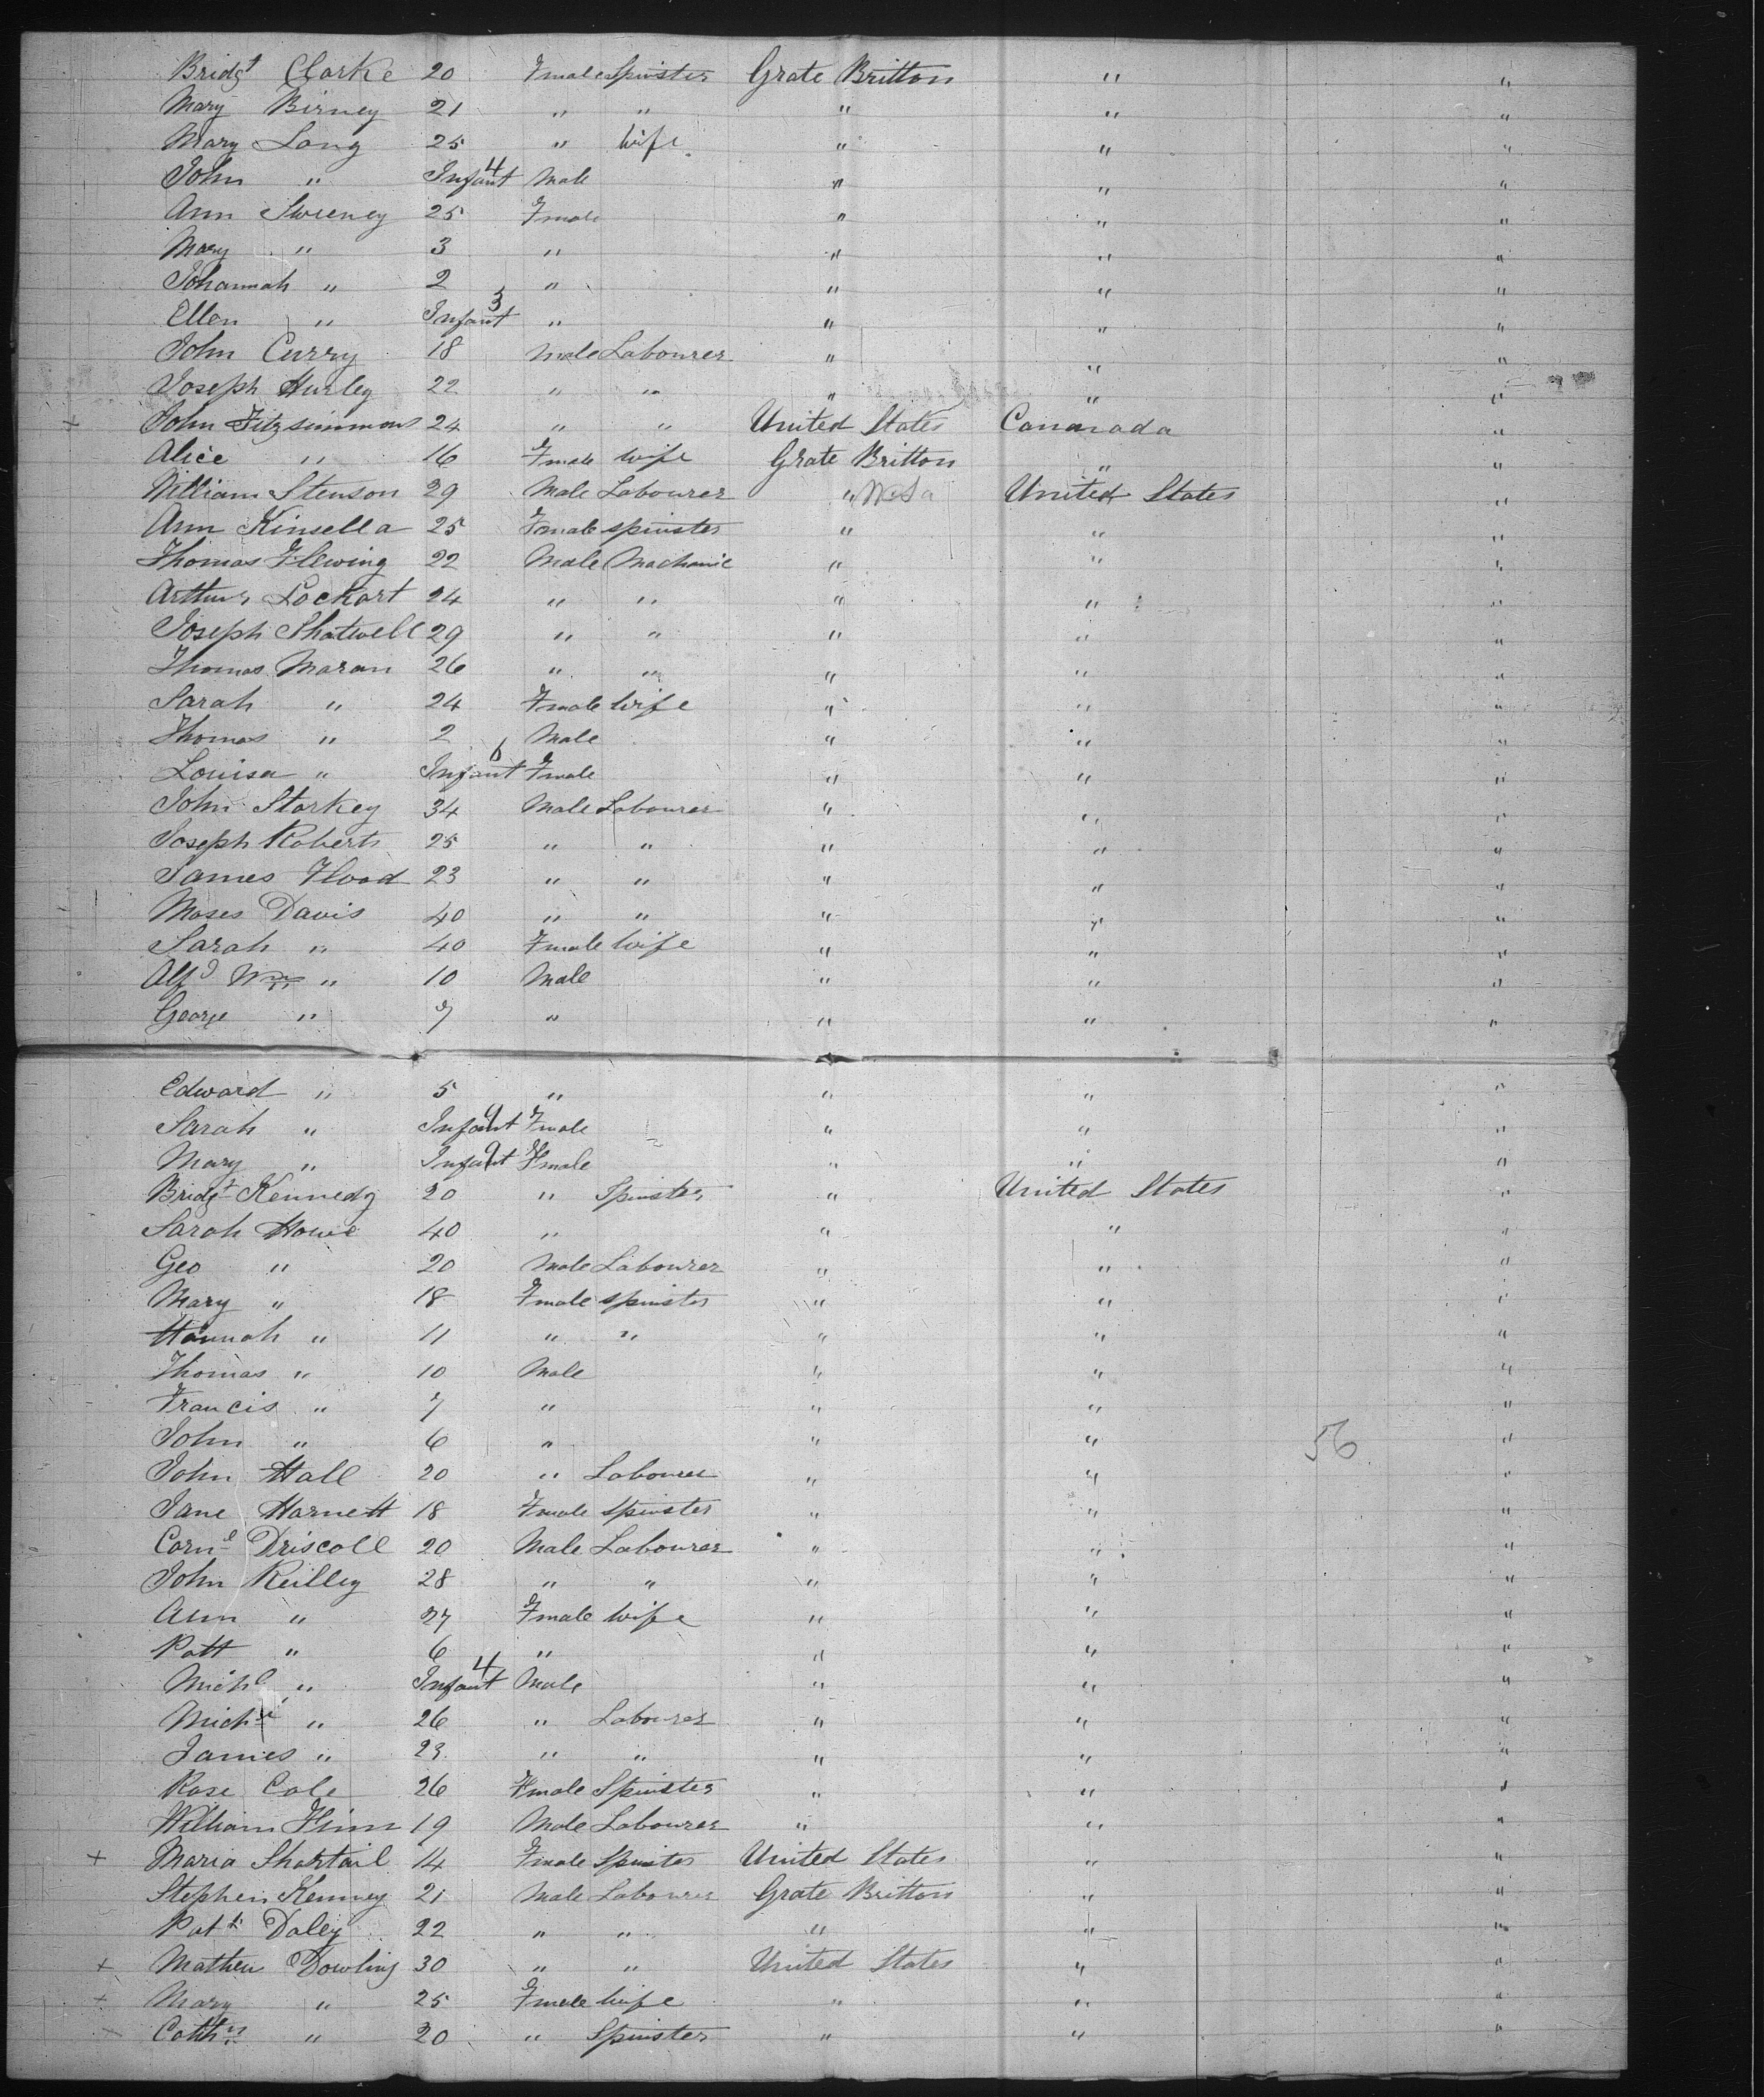 Bridgt Clarke 20 Fmale Spinster Grate Britton " "
Mary Birney 21 " " " " "
Mary Long 25 " wife " " "
John " Infant 4 Male " " "
Ann Sweeney 25 Fmale " " "
Mary " 3 " " " "
Johannah " 2 " " " "
Ellen " Infant 3 " " " "
John Curry 18 Male Labourer " " "
Joseph Hurley 22 " " " " "
+ John Fitzsimmons 24 " " United States Cannada "
Alice " 16 Fmale wife Grate Britton " "
William Stenson 29 Male Labourer " United States "
Ann Kinsella 25 Fmale spinster " " "
Thomas Flewing 22 Male Machanic " " "
Arthur Lockart 24 " " " " "
Joseph Shatwell 29 " " " " "
Thomas Maran 26 " " " " "
Sarah " 24 Fmale wife " " "
Thomas " 2 Male " " "
Louisa " Infant 6 Fmale " " "
John Starkey 34 Male Labourer " " "
Joseph Roberts 25 " " " " "
James Flood 23 " " " " "
Moses Davis 40 " " " " "
Sarah " 40 Fmale wife " " "
Alfd Wm " 10 Male " " "
George " 7 " " " "
Edward " 5 " " " "
Sarah " Infant 9 Fmale " " "
Mary " Infant 9 Fmale " " "
Bridgt Kennedy 20 " Spinster " United States "
Sarah Howe 40 " " " "
Geo " 20 Male Labourer " " "
Mary " 18 Fmale spinster " " "
Hannah " 11 " " " " "
Thomas " 10 Male " " "
Francis " 7 " " " "
John " 6 " " " 56 "
John Hall 20 " Labourer " " "
Jane Harnett 18 Fmale spinster " " "
Cornl Driscoll 20 Male Labourer " " "
John Reilley 28 " " " " "
Ann " 27 Fmale wife " " "
Patt " 6 " " " "
Michl " Infant 4 Male " " "
Michl " 26 " Labourer " " "
James " 23 " " " " "
Rose Cole 26 Fmale Spinster " " "
William Flinn 19 Male Labourer " " "
+ Maria Shartail 14 Fmale Spinster United States " "
Stephen Kenney 21 Male Labourer Grate Britton " "
Patk Daley 22 " " " " "
+ Matheu Dowling 30 " " United States " "
+ Mary " 25 Fmale wife " " "
Cathn " 20 " Spinster " " "